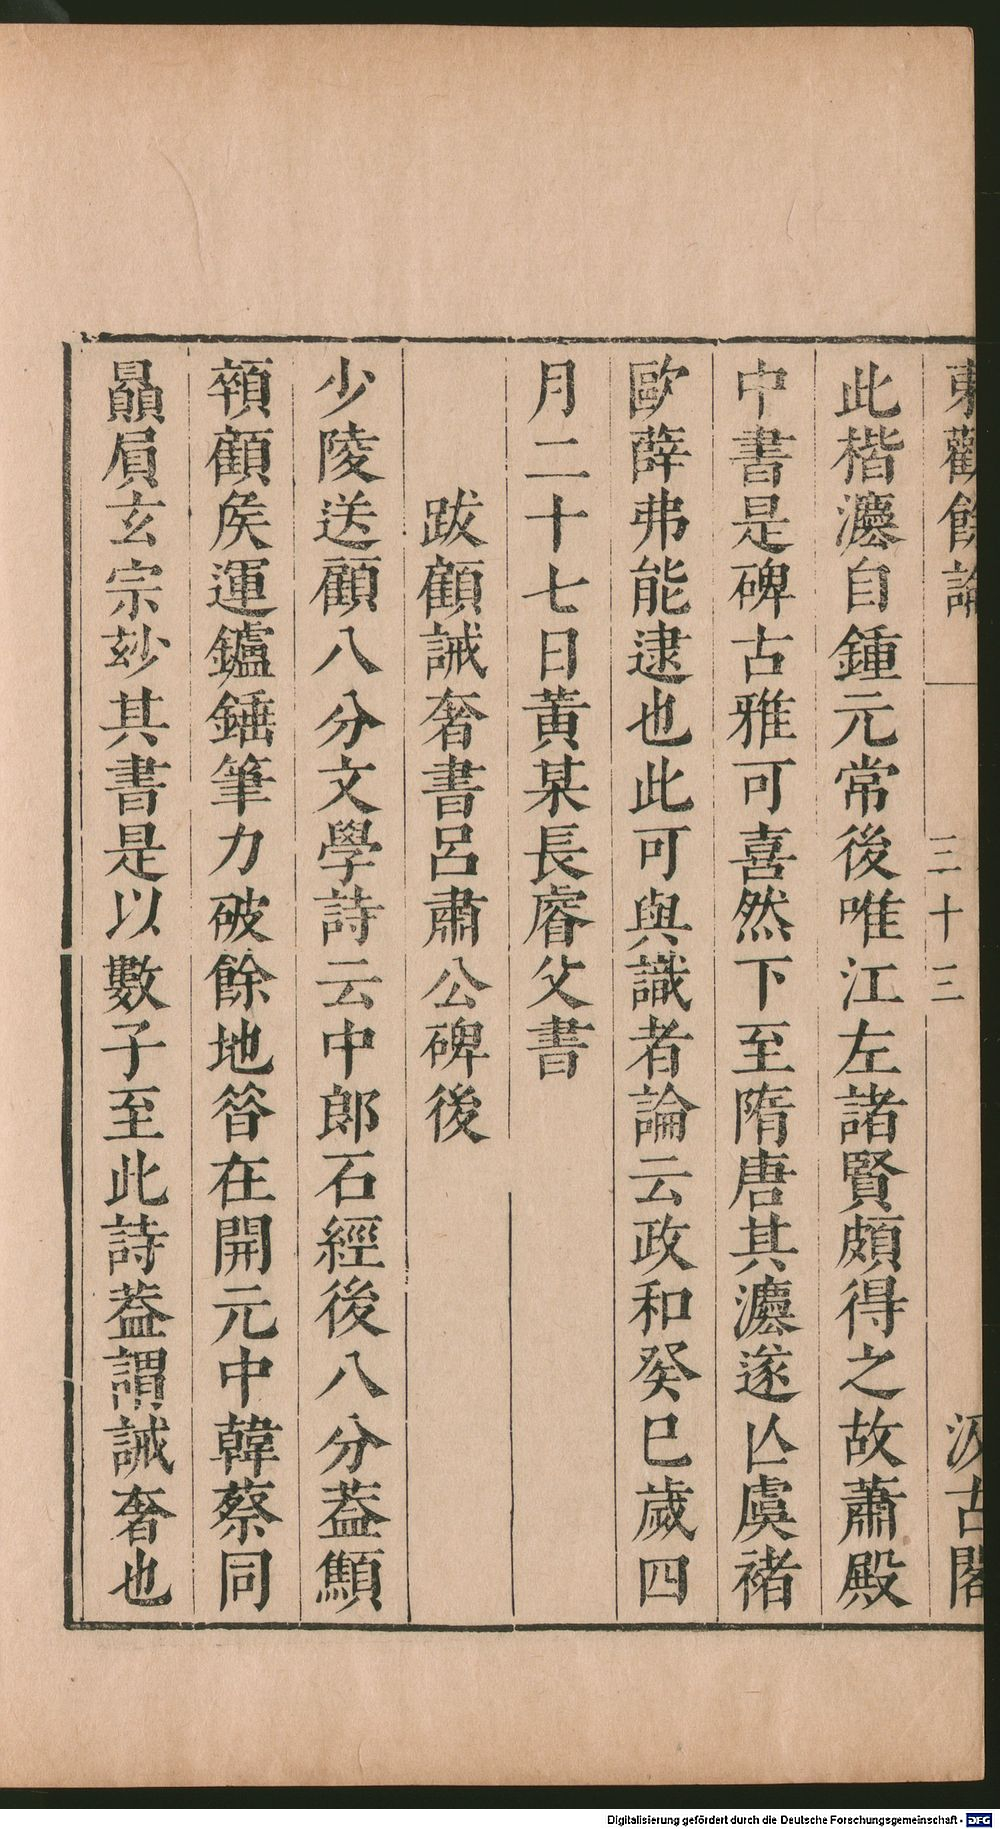 東觀餘論 三十三 汲古閣
此楷灋自鍾元常後唯江左諸賢頗得之故蕭殿
中書是碑古雅可喜然下至隋唐其灋遂亾虞褚
歐薛弗能逮也此可與識者論云政和癸巳歲四
月二十七日黃某長睿父書
跋顧誡奢書呂肅公碑後
少陵送顧八分文學詩云中郎石經後八分蓋顦
顇顧矦運鑪錘筆力破餘地昝在開元中韓蔡同
贔屓玄宗玅其書是以數子至此詩葢謂誡奢也
Digitalisierung gefördert durch die Deutsche Forschungsgemeinschaft - DFG